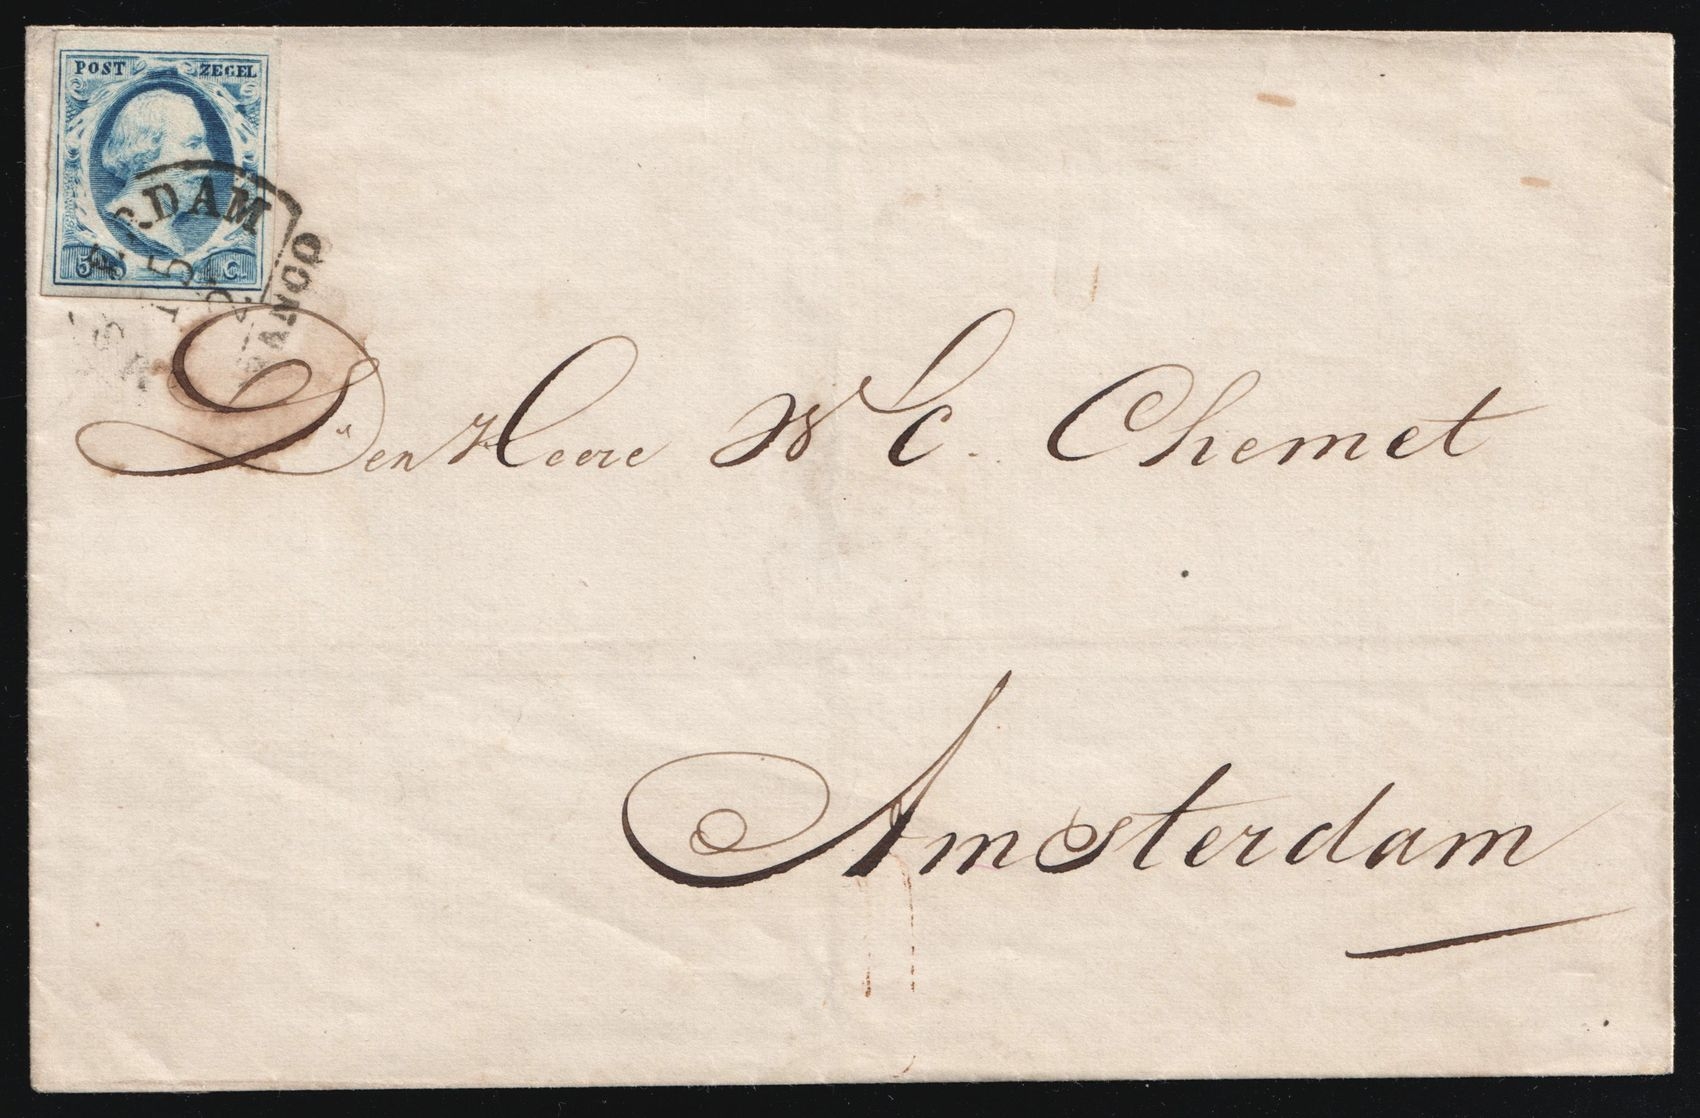 POST ZEGEL
5 C.
DAM
15
ANCO
Den Heere W C. Chemet
Amsterdam